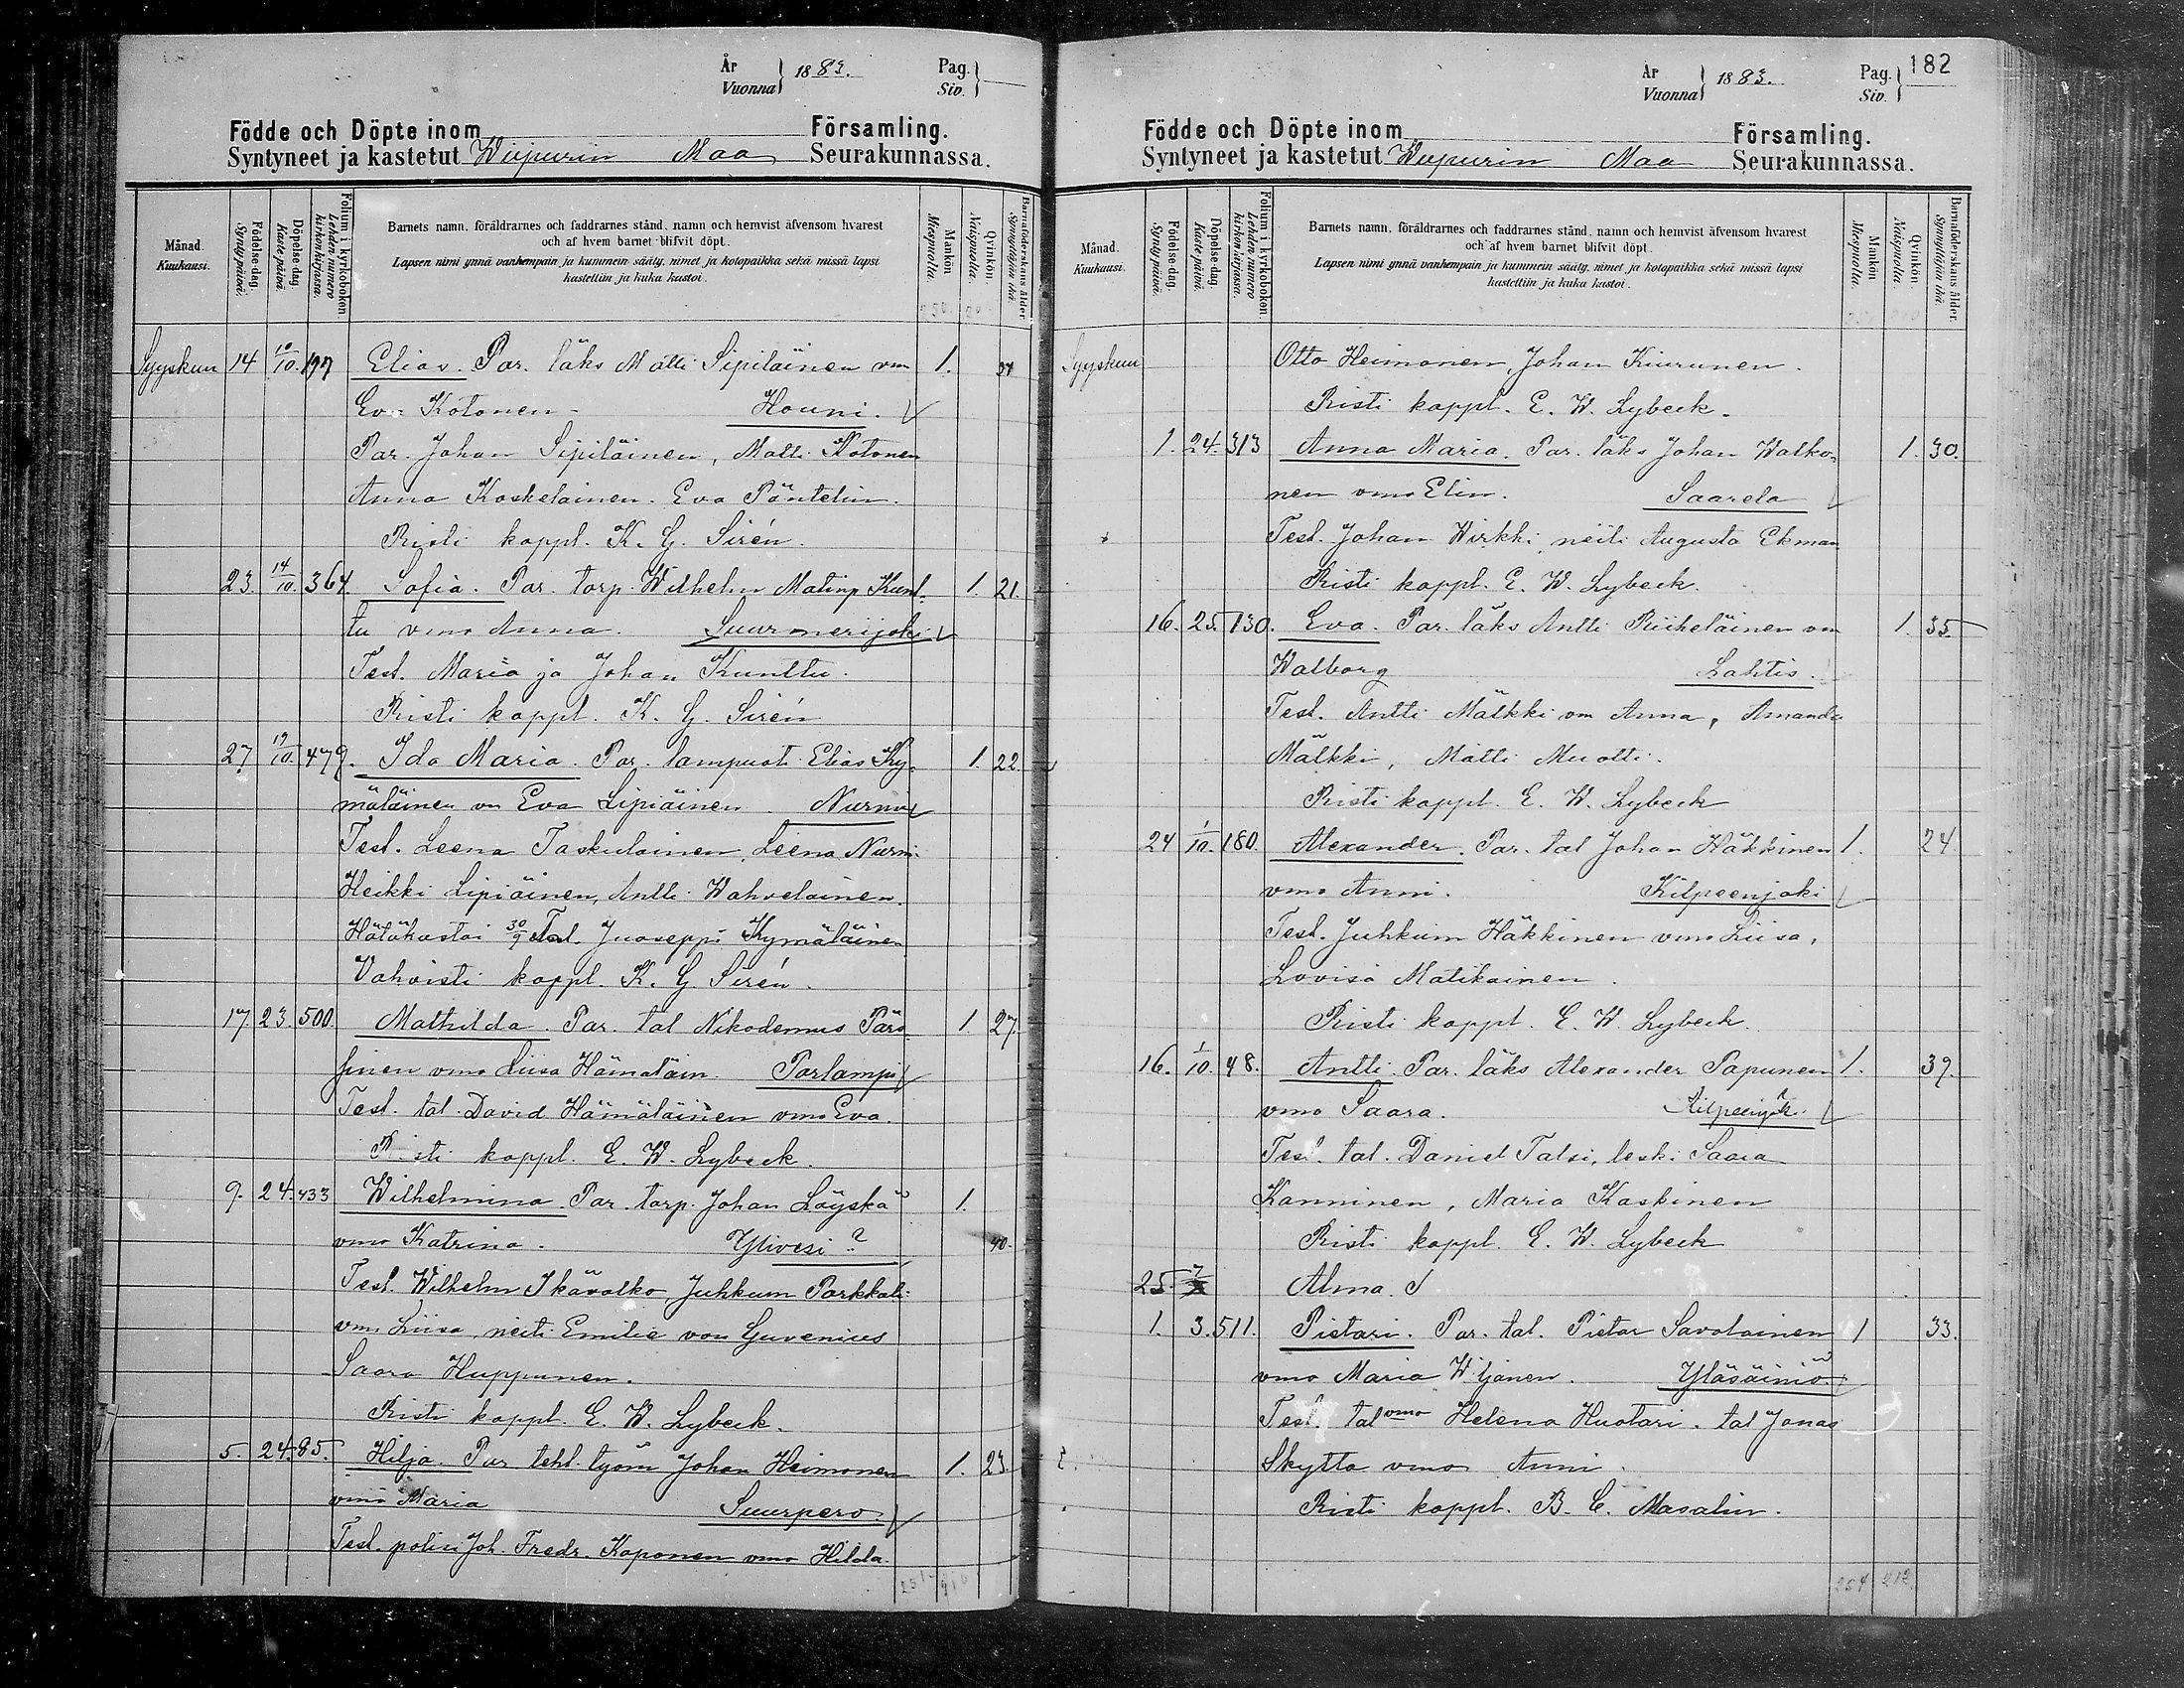 År Vuonna } 1883. Pag. Siv. }
Födde och Döpte inom Församling.
Syntyneet ja kastetut Wiipurin Maa Seurakunnassa.
Månad. Kuukausi.
Födelse-dag. Synty-päivä.
Döpelse-dag. Kaste-päivä.
Folium i kyrkoboken. Lehden numero kirkonkirjassa.
Barnets namn, föräldrarnes och faddrarnes stånd, namn och hemvist äfvensom hvarest
och af hvem barnet blifvit döpt.
Lapsen nimi ynnä vanhempain ja kummein sääty, nimet ja kotopaikka sekä missä lapsi
kastettiin ja kuka kastoi.
Mankön. Miespuolta.
Qvinkön. Naispuolta.
Barnaföderskans ålder. Synnyttäjän ikä.
Syyskuu 14 10/10. 197 Elias. Par. läks Matti Sipiläinen vm 1.
Eva Kotonen - Houni.
Par. Johan Sipiläinen, Matti Kotonen
Anna Koskelainen. Eva Päntelin.
Risti kappl. K. G. Sirén.
23. 14/10. 364 Sofia. Par. torp. Wilhelm Matinp Kunt 1. 21.
tu vmo Anna. Suurmerijoki
Test. Maria ja Johan Kunttu.
Risti kappl. K. G. Sirén
27 19/10. 479. Ida Maria. Par. lampuoti Elias Ky- 1. 22
mäläinen vm Eva Lipiäinen. Nurmi
Test. Leena Taskulainen, Leena Nurmi.
Heikki Lipiäinen, Antti Wahvelainen.
Hätäkastoi 30/9 Tal. Juoseppi Kymäläinen
Vahvisti kappl. K. G. Sirén.
17. 23. 500. Mathilda. Par. tal Nikodemus Pärs 1. 27.
sinen vmo Liisa Hämäläin. Porlampi
Test. tal. David Hämäläinen vmo Eva.
Risti kappl. E. W. Lybeck.
9. 24. 433 Wilhelmina. Par. torp. Johan Löyskä 1.
vmo Katrina. Ylivesi? 40.
Test. Wilhelm Ikävalko, Juhkum Parkkali
vmo Liisa, neiti Emilie von Guvenius
Saara Huppunen.
Risti kappl. E. W. Lybeck.
5. 24. 85. Hilja. Par teht. työm Johan Heimonen 1. 23.
vmo Maria Suurpero.
Test. polisi Joh. Fredr. Koponen vmo Hilda.
År Vuonna } 1883. Pag. Siv. } 182
Födde och Döpte inom Församling.
Syntyneet ja kastetut Wiipurin Maa Seurakunnassa.
Månad. Kuukausi.
Födelse-dag. Synty-päivä.
Döpelse-dag. Kaste-päivä.
Folium i kyrkoboken. Lehden numero kirkonkirjassa.
Barnets namn, föräldrarnes och faddrarnes stånd, namn och hemvist äfvensom hvarest
och af hvem barnet blifvit döpt.
Lapsen nimi ynnä vanhempain ja kummein sääty, nimet ja kotopaikka sekä missä lapsi
kastettiin ja kuka kastoi.
Mankön. Miespuolta.
Qvinkön. Naispuolta.
Barnaföderskans ålder. Synnyttäjän ikä.
Syyskuu Otto Heimonen, Johan Kiurunen.
Risti kappl. E. W. Lybeck.
1. 24. 313 Anna Maria. Par. läks Johan Walko- 1. 30.
nen vmo Elin. Saarela
Test. Johan Wirkki, neiti Augusta Ekman
Risti kappl. E. W. Lybeck.
16. 25. 130. Eva. Par. läks Antti Riiheläinen vm 1. 35
Walborg Lahtis.
Test. Antti Mälkki vm Anna, Amanda
Mälkki, Matti Muotti.
Risti kappl. E. W. Lybeck
24 1/10. 180. Alexander. Par. tal Johan Häkkinen 1. 24
vmo Anni. Kilpeenjoki
Test. Juhkum Häkkinen vmo Liisa,
Lovisa Matikainen.
Risti kappl. E. W. Lybeck.
16. 1/10. 48. Antti. Par. läks Alexander Papunen 1. 39.
vmo Saara. Kilpeenjok
Test. tal. Daniel Talsi, leski Saara
Kanninen, Maria Kaskinen
Risti kappl. E. W. Lybeck
25. Alma.
1. 3. 511. Pietari. Par. tal. Pietar Savolainen 1 33.
vmo Maria Wiljanen. Yläsäiniö
Test. tal vmo Helena Huotari. tal Jonas
Skyttä vmo Anni.
Risti kappl. B. C. Masalin.
254 212